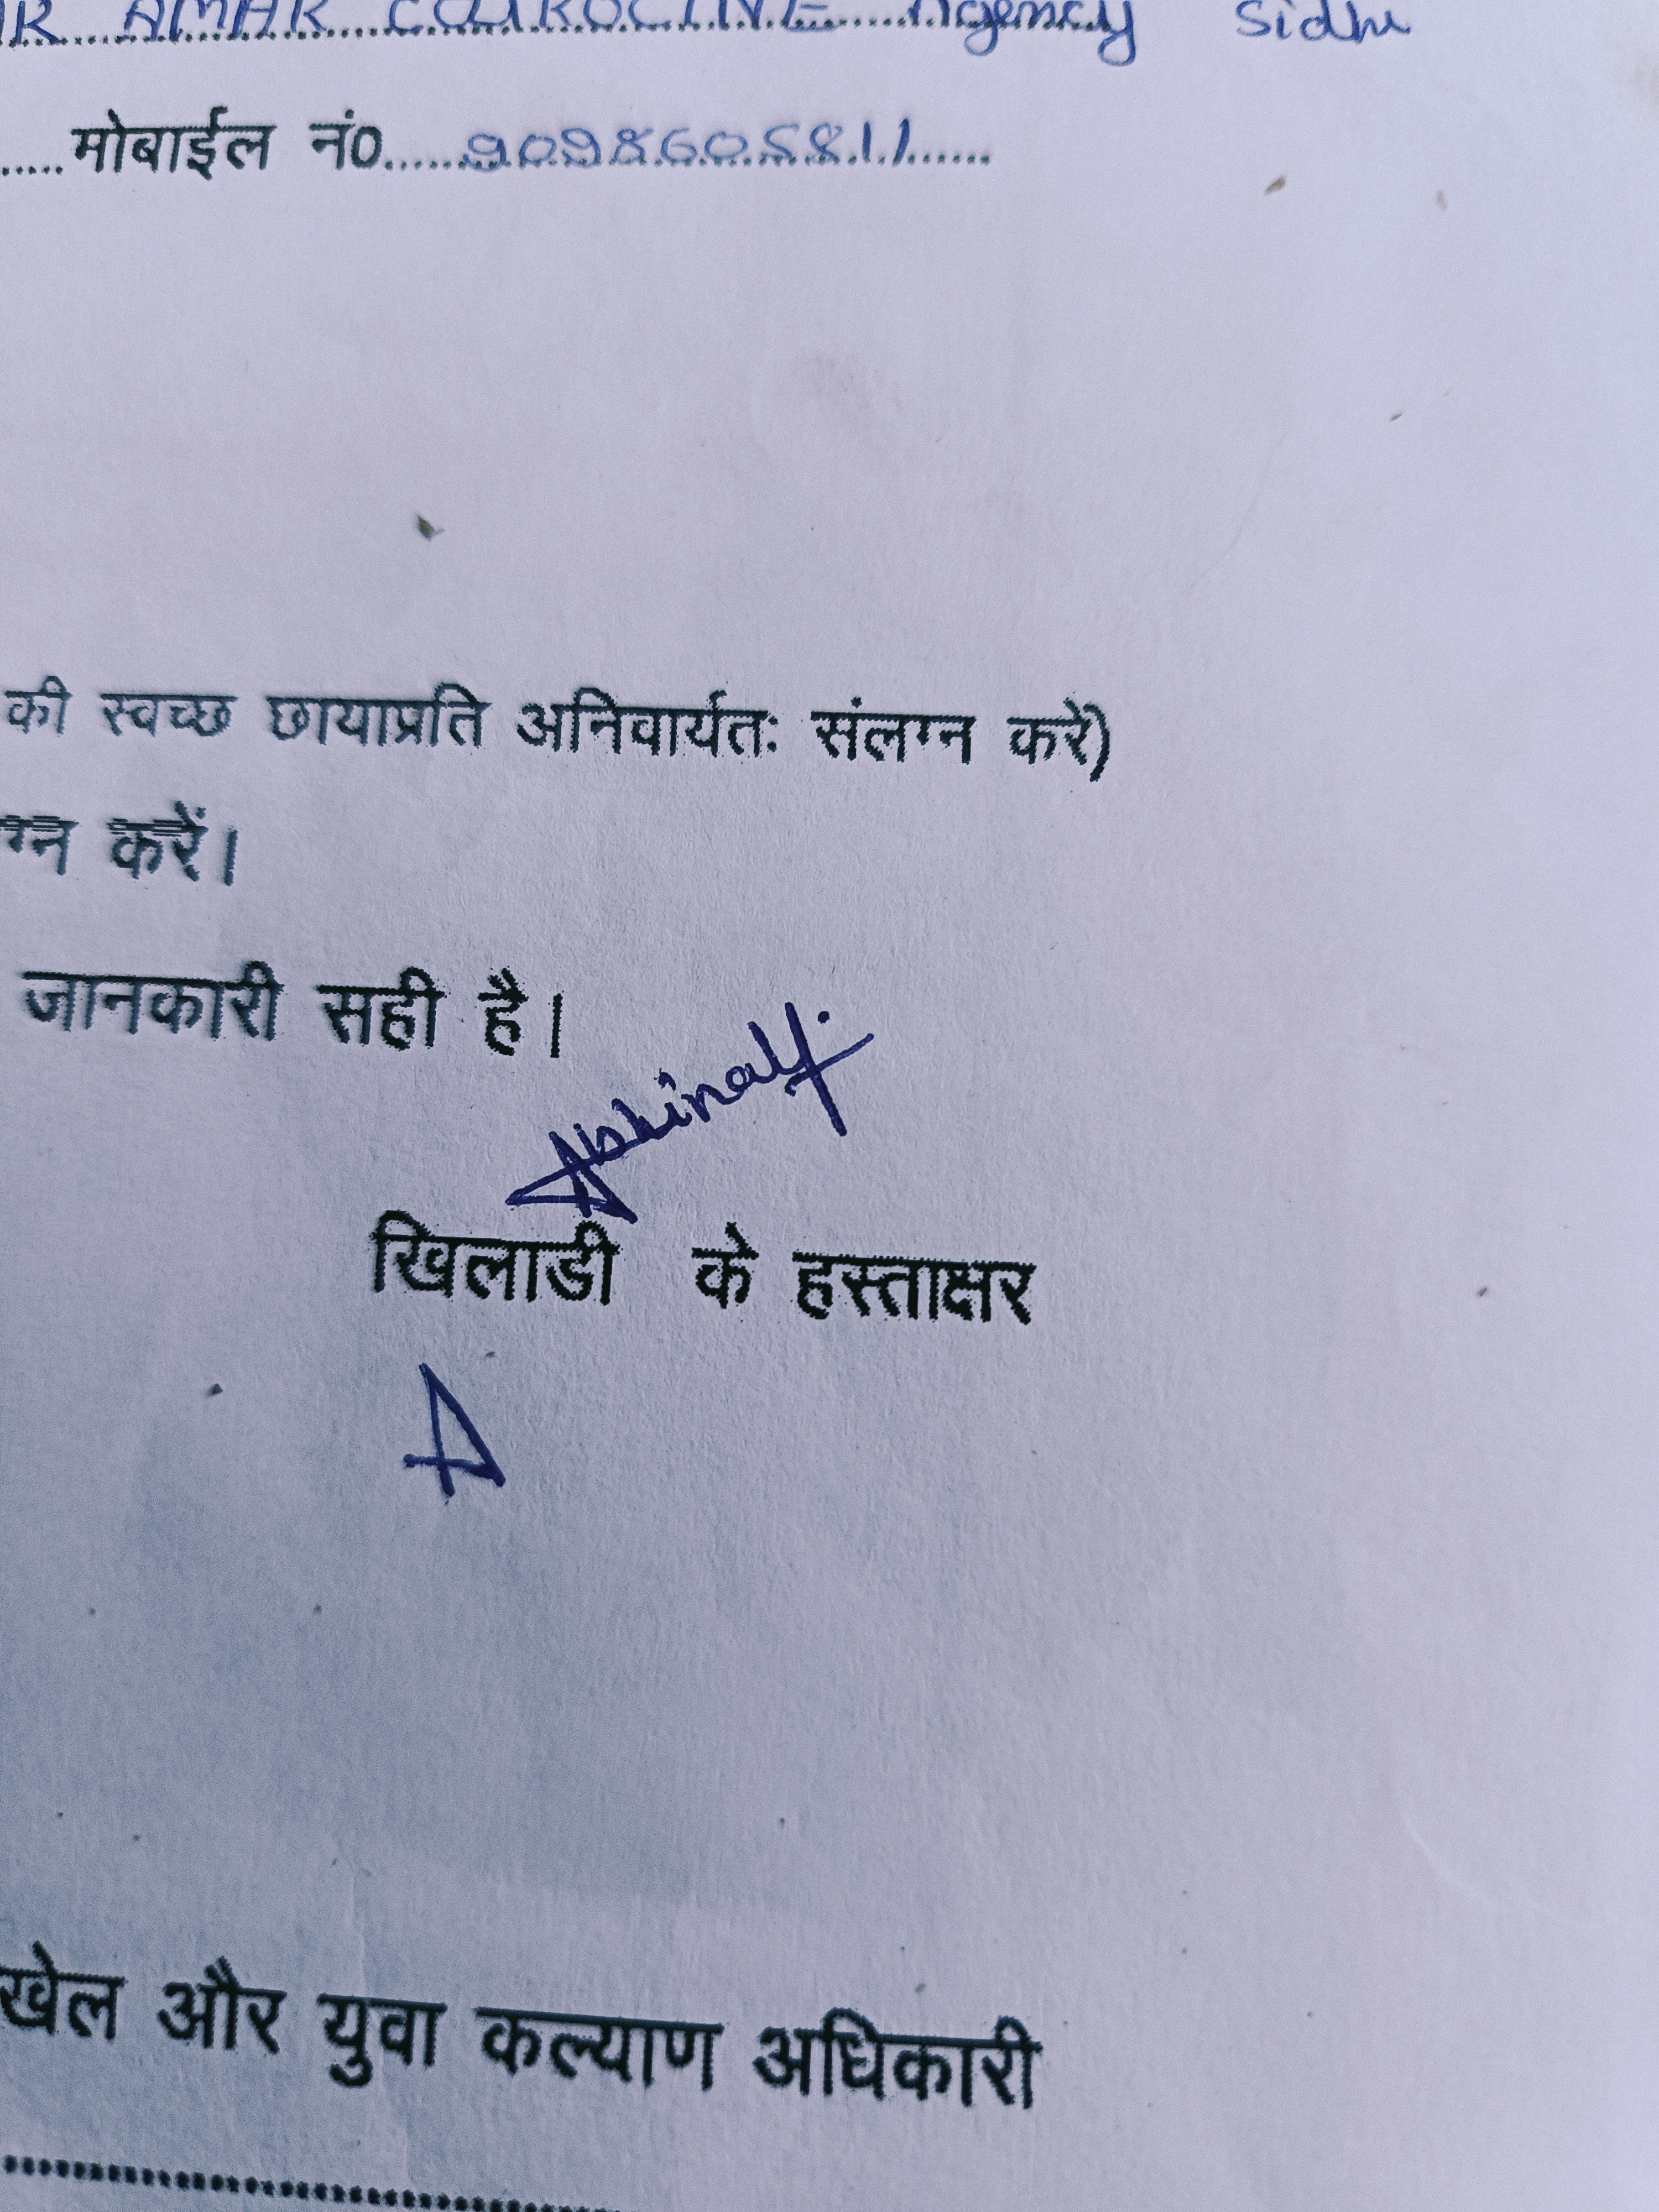 AMAR Agency Sidhi
.....मोबाईल नं0......9098605811......
की स्वच्छ छायाप्रति अनिवार्यतः संलग्न करें)
ग्न करें।
जानकारी सही है।
Abhinav
खिलाडी के हस्ताक्षर
A
खेल और युवा कल्याण अधिकारी